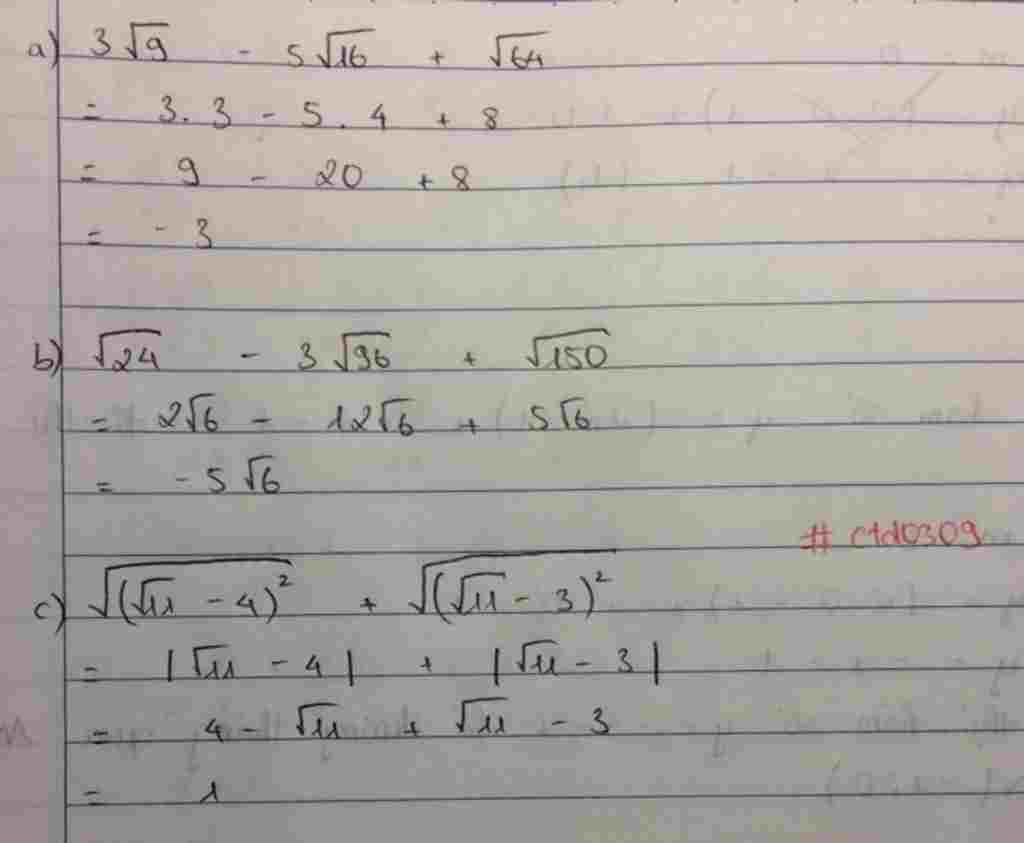 a) 3√9 - 5√16 + √64
= 3.3 - 5.4 + 8
= 9 - 20 + 8
= -3
b) √24 - 3√96 + √150
= 2√6 - 12√6 + 5√6
= -5√6
# ctd0309
c) √(√11 - 4)² + √(√11 - 3)²
= |√11 - 4| + |√11 - 3|
= 4 - √11 + √11 - 3
= 1